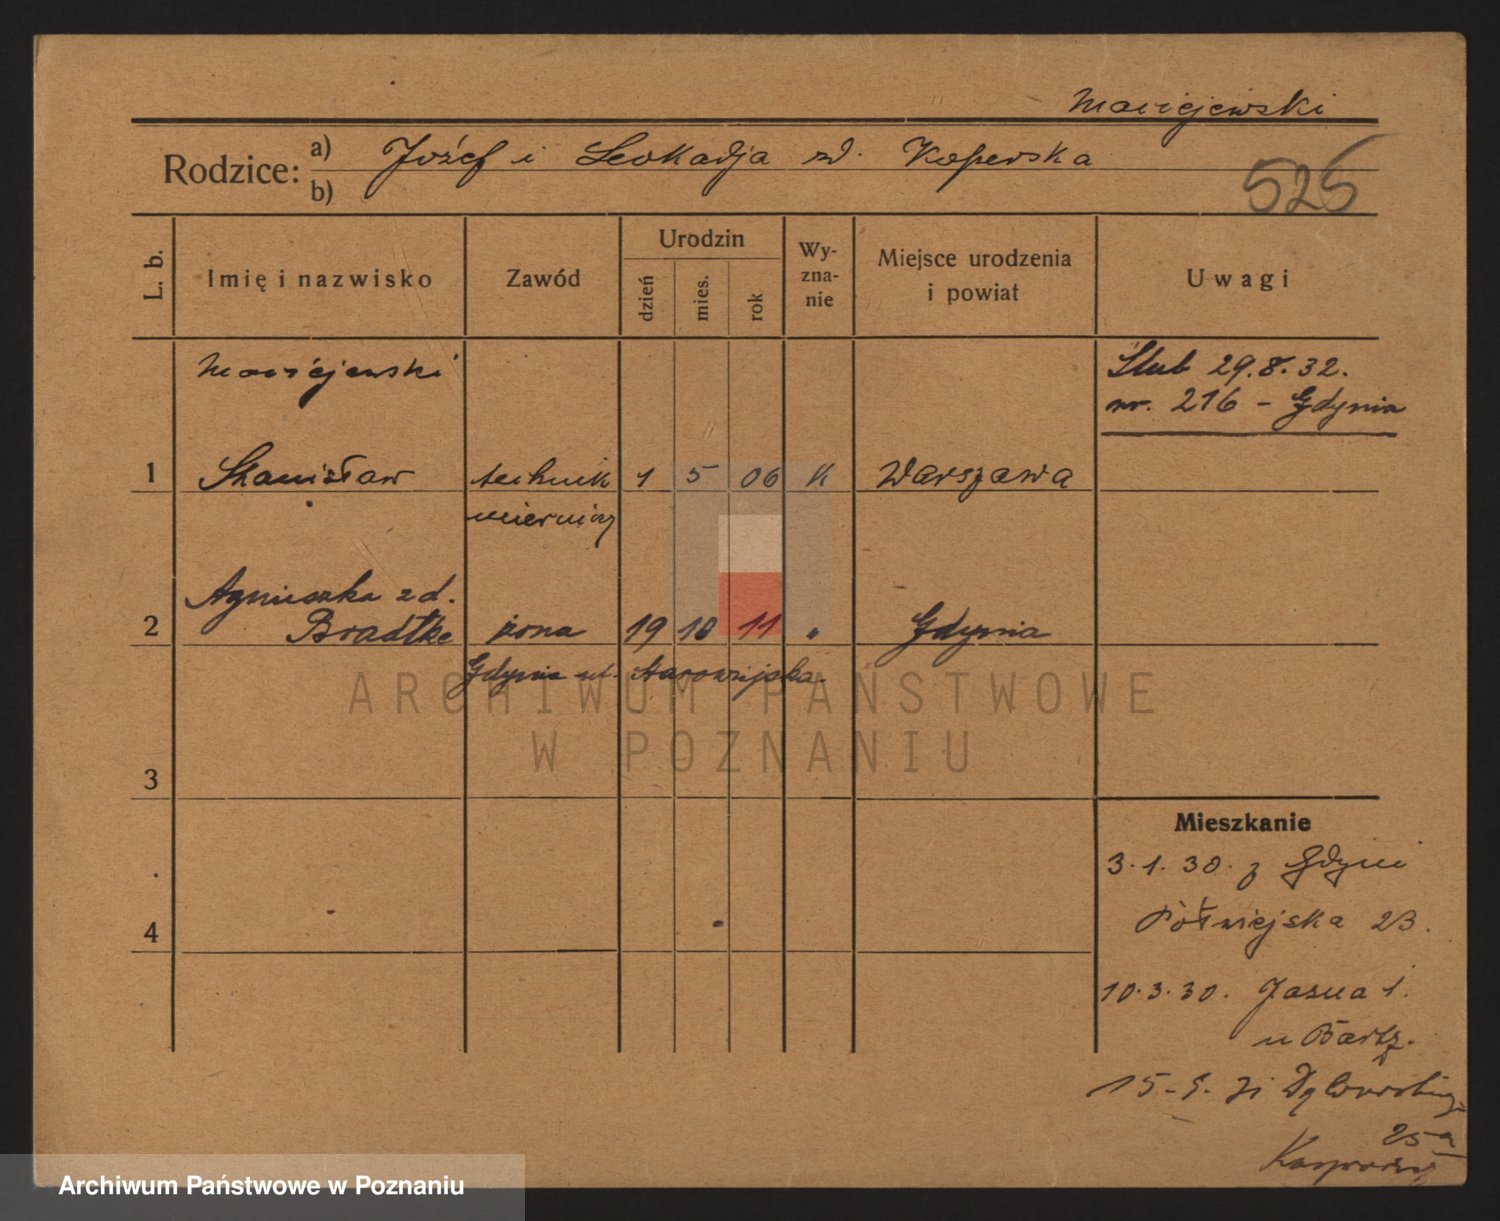 Maciejewski
Rodzice: a) Józef i Leokadja zd. Koperska
b)
525
L. b.
Imię i nazwisko
Zawód
Urodzin
dzień
mies.
rok
Wy-
zna-
nie
Miejsce urodzenia
i powiat
Uwagi
Maciejewski
Ślub 29.8.32.
nr. 216 - Gdynia
1 Stanisław technik 1 5 06 K Warszawa
mierniczy
Agnieszka zd.
2 Bradtke żona 19 10 11 " Gdynia
Gdynia ul. Starowiejska.
ARCHIWUM PAŃSTWOWE
W POZNANIU
3
Mieszkanie
3.1.30. z Gdyni
Półwiejska 23.
4
10.3.30. Jasna 1.
u Bartz.
15-5-31 Dąbrowskiego
25a
Archiwum Państwowe w Poznaniu